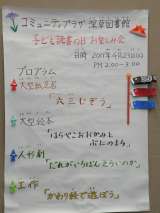 コミュニティプラザ 図書館
子ども読書の日 お楽しみ会
日時 2017年4月23日(日)
PM 2:00~3:00
プログラム
大型紙芝居
「六三じぞう」
大型絵本
「はらぺこおおかみと
ぶたのまち」
人形劇
「だれがいちばんえらいのか」
工作
「かわり絵で遊ぼう」